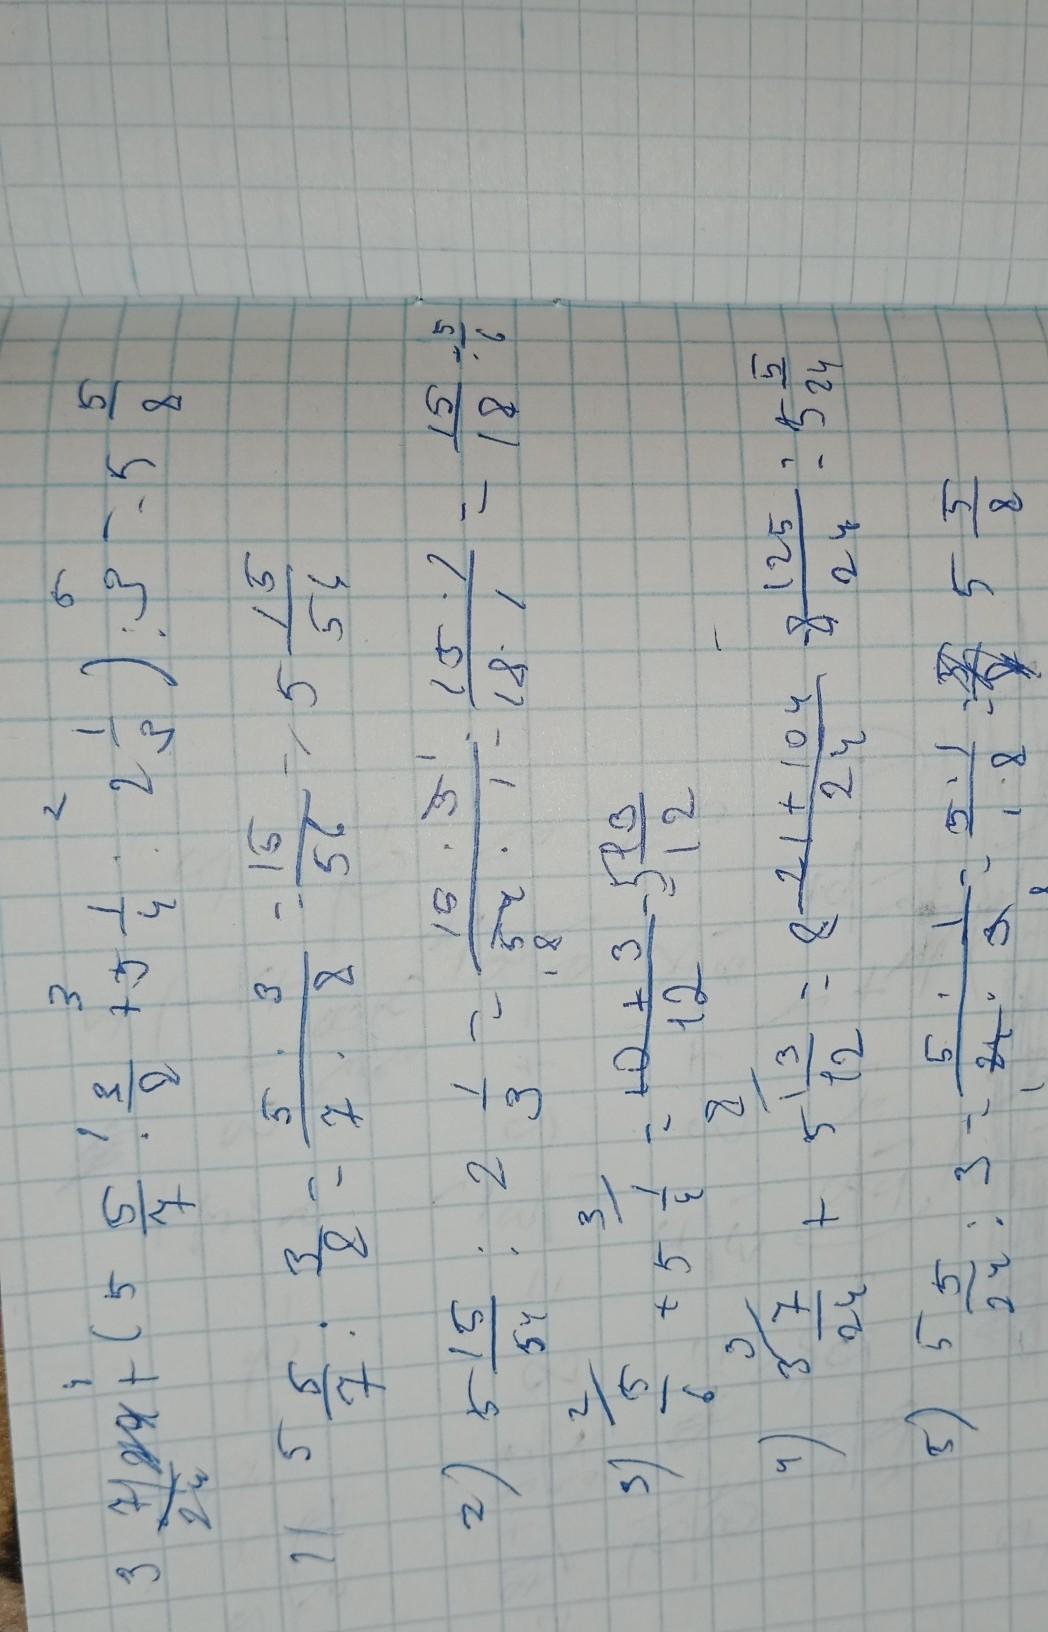 3 7/24 + (5 5/7 · 3/8 + 5 1/4 : 2 1/3) : 3 = 5 5/8
1) 5 5/7 · 3/8 = 5 · 3 / 7 · 8 = 15/56 = 5 15/54
2) 5 15/54 : 2 1/3 = 15 · 3 / 54 · 1 = 15 · 1 / 18 · 1 = 15/18 = 5/6
3) 5/6 + 5 1/4 = 10 + 3 / 12 = 5 13/12
4) 3 7/24 + 5 13/12 = 8 21 + 104 / 24 = 8 125/24 = 5 5/24
5) 5 5/24 : 3 = 5 · 1 / 24 · 3 = 5 · 1 / 1 · 8 = 5 5/8